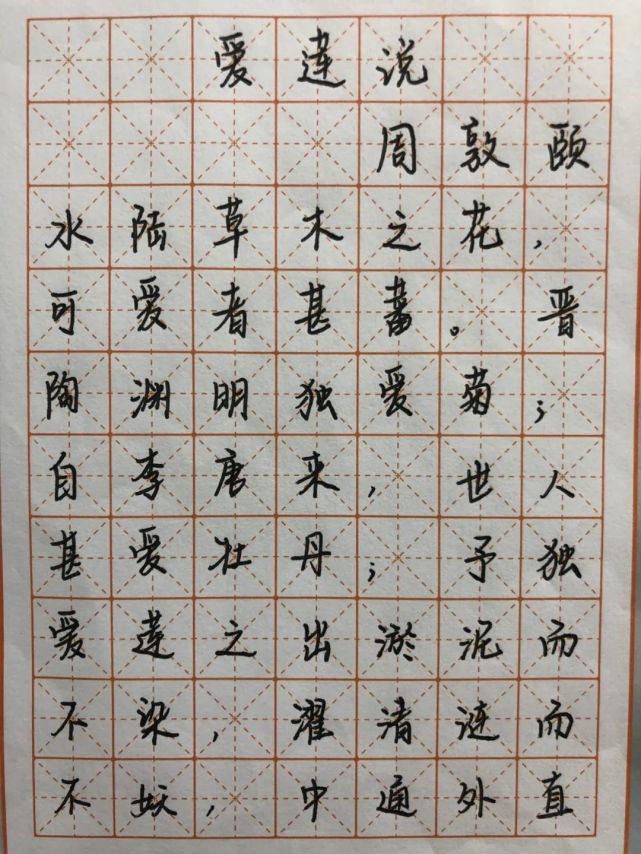 爱莲说
周敦颐
水陆草木之花，
可爱者甚蕃。晋
陶渊明独爱菊；
自李唐来，世人
甚爱牡丹；予独
爱莲之出淤泥而
不染，濯清涟而
不妖，中通外直